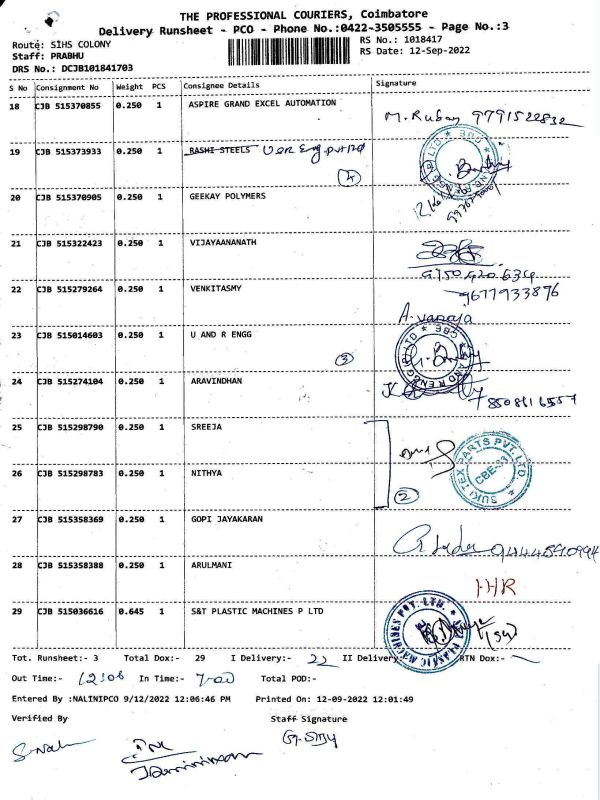 THE PROFESSIONAL COURIERS, Coimbatore
Delivery Runsheet - PCO - Phone No.:0422-3505555 - Page No.:3
Route: SIHS COLONY
RS No.: 1018417
Staff: PRABHU
RS Date: 12-Sep-2022
DRS No.: DCJB101841703
S No Consignment No Weight PCS Consignee Details Signature
18 CJB 515370855 0.250 1 ASPIRE GRAND EXCEL AUTOMATION M. Ruban 9791522832
19 CJB 515373933 0.250 1 RASHI STEELS U and R Eng Pvt Ltd
4
20 CJB 515370905 0.250 1 GEEKAY POLYMERS
21 CJB 515322423 0.250 1 VIJAYAANANATH
9750420634
22 CJB 515279264 0.250 1 VENKITASMY 9677933876
A. vanaja
23 CJB 515014603 0.250 1 U AND R ENGG
3
24 CJB 515274104 0.250 1 ARAVINDHAN
25 CJB 515298790 0.250 1 SREEJA
SUKI TEX PARTS PVT. LTD
CBE-33
26 CJB 515298783 0.250 1 NITHYA
2
27 CJB 515358369 0.250 1 GOPI JAYAKARAN
9444590994
28 CJB 515358388 0.250 1 ARULMANI
HR
29 CJB 515036616 0.645 1 S&T PLASTIC MACHINES P LTD
PLASTIC MACHINES PVT. LTD.
Tot. Runsheet:- 3 Total Dox:- 29 I Delivery:- 22 II Delivery:- RTN Dox:-
Out Time:- 12:06 In Time:- 7:00 Total POD:-
Entered By :NALINIPCO 9/12/2022 12:06:46 PM Printed On: 12-09-2022 12:01:49
Verified By Staff Signature